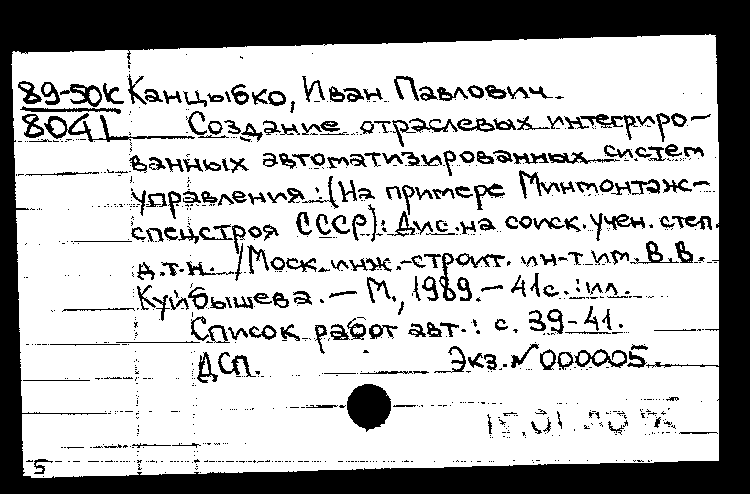 89-50к Канцыбко, Иван Павлович.
8041 Создание отраслевых интегриро-
ванных автоматизированных систем
управления: (На примере Минмонтаж-
спецстроя СССР): Дис. на соиск. учен. степ.
д.т.н. / Моск. инж.-строит. ин-т им. В.В.
Куйбышева. — М., 1989. — 41с.: ил.
Список работ авт.: с. 39-41.
ДСП. Экз. № 000005.
5